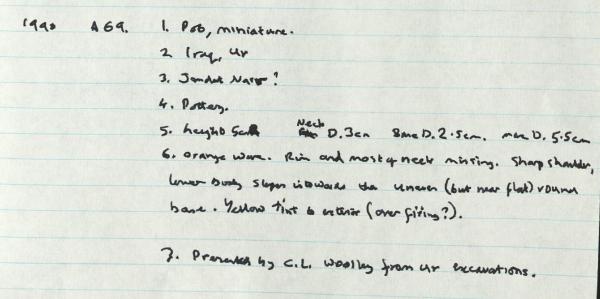 1990 A69. 1. Pot, miniature.
2 Iraq, Ur
3. Jemdet Nasr?
4. Pottery.
5. height 5cm Neck D. 3cm Base D. 2.5cm. max D. 5.5cm
6. orange ware. Rim and most of neck missing. Sharp shoulder,
lower body slopes inwards to uneven (but near flat) round
base. Yellow tint to exterior (over firing?).
7. Presented by C.L. Woolley from Ur excavations.